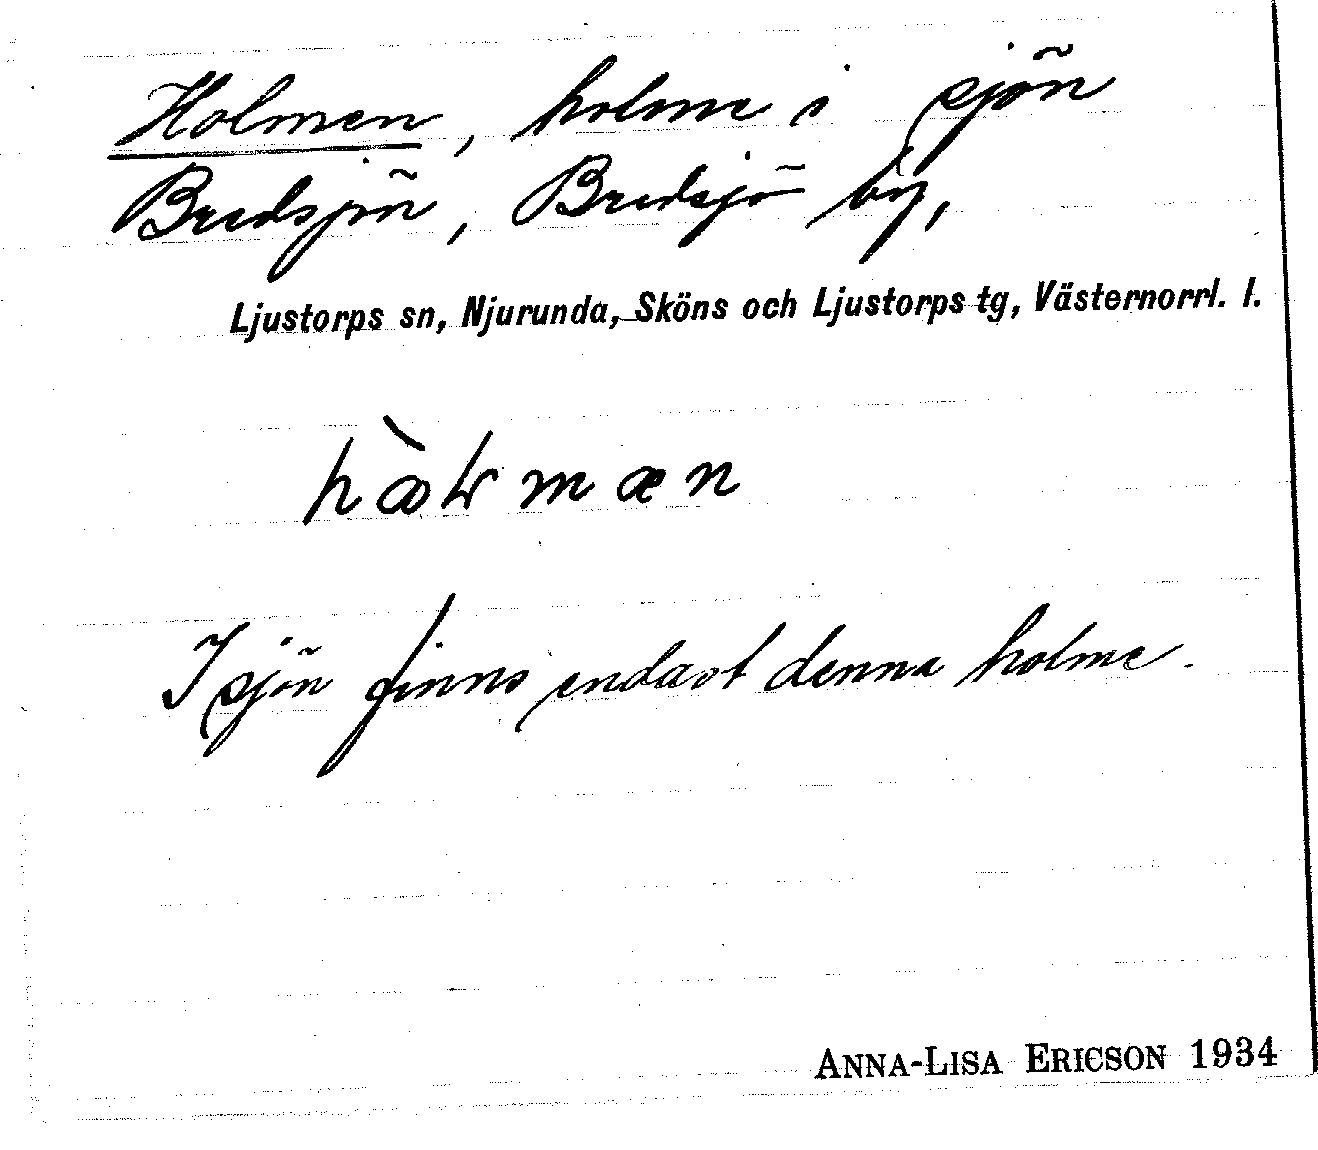 Holmen, holme i sjön
Bredsjön, Bredsjö by,
Ljustorps sn, Njurunda, Sköns och Ljustorps tg, Västernorrl. l.
I sjön finns endast denna holme.
ANNA-LISA ERICSON 1934